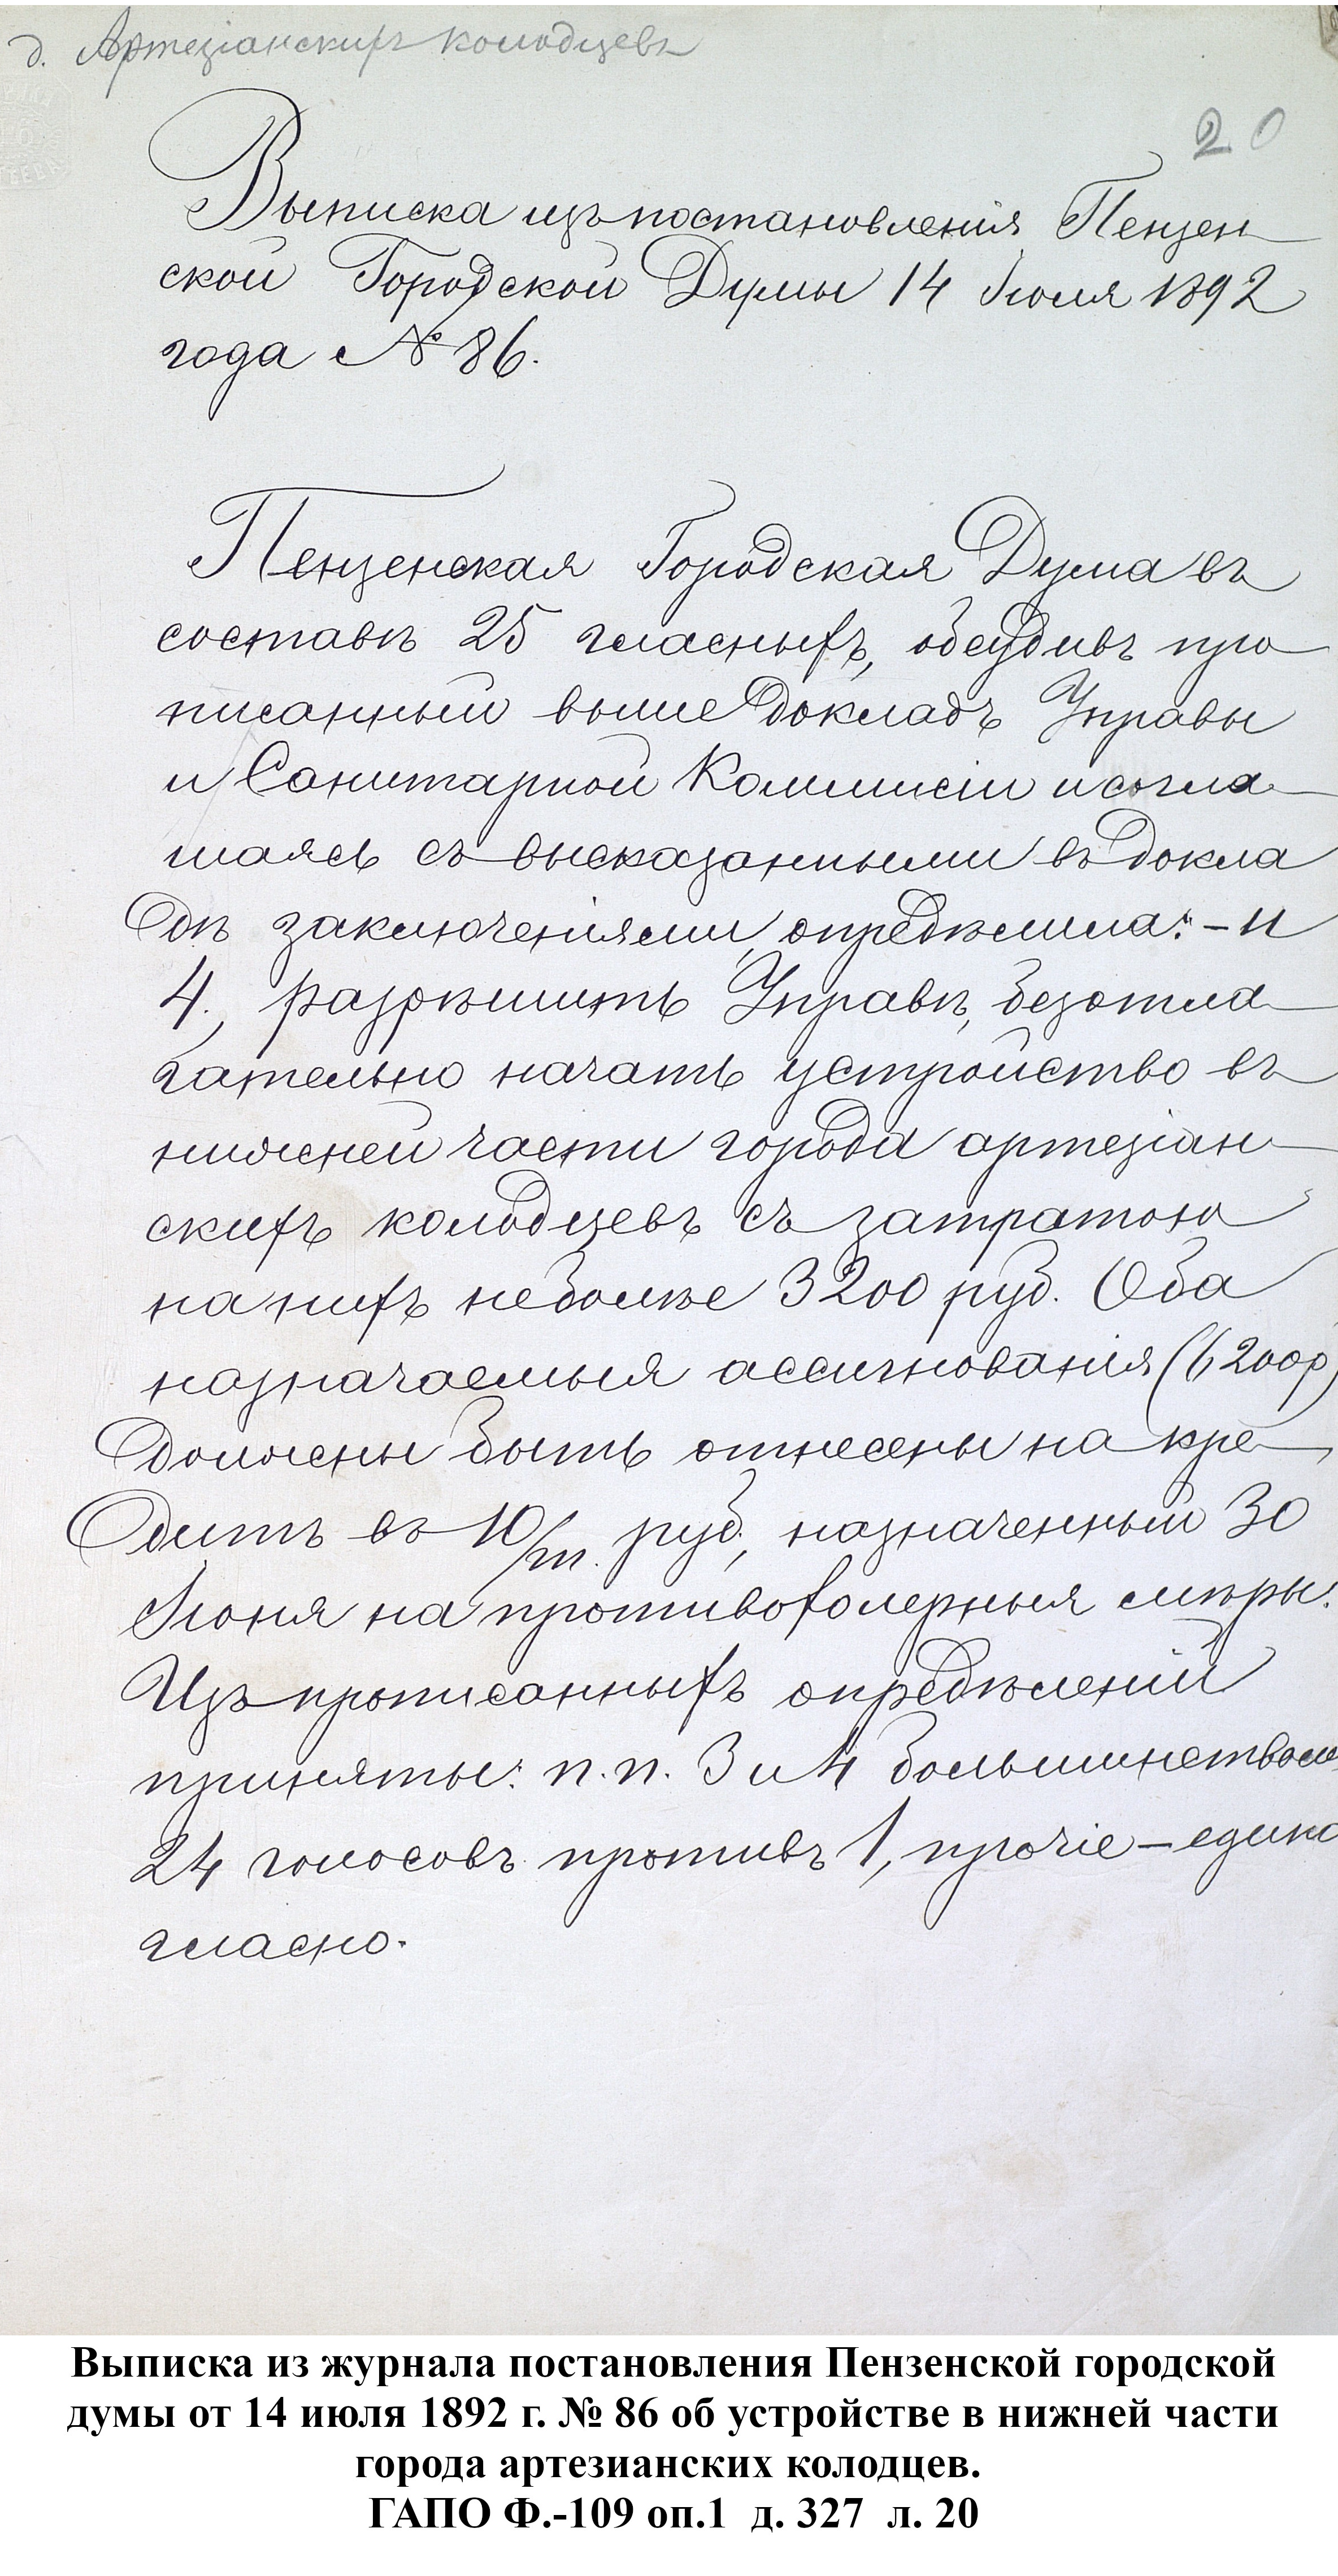 д. Артезіанскихъ колодцевъ
20
Выписка изъ постановленія Пензен
ской Городской Думы 14 Іюля 1892
года № 86.
Пензенская Городская Дума въ
составѣ 25 гласныхъ, обсудивъ про
писанный выше докладъ Управы
и Санитарной Коммисіи и согла-
шаясь съ высказанными въ докла
дѣ заключеніями, опредѣлила: - и
4., разрѣшить Управѣ, безотла-
гательно начать устройство въ
нижней части города артезіан-
скихъ колодцевъ съ затратою
на нихъ неболѣе 3200 руб. Оба
назначаемыя ассигнованія (6200р)
должены быть отнесены на кре-
дитъ въ 10/т. руб., назначенный 30
Іюня на противохолерныя мѣры.
Изъ прописанныхъ опредѣленій
приняты: п.п. 3 и 4 большинством
24 голосовъ противъ 1, прочіе - едино
гласно.
Выписка из журнала постановления Пензенской городской
думы от 14 июля 1892 г. № 86 об устройстве в нижней части
города артезианских колодцев.
ГАПО Ф.-109 оп.1 д. 327 л. 20